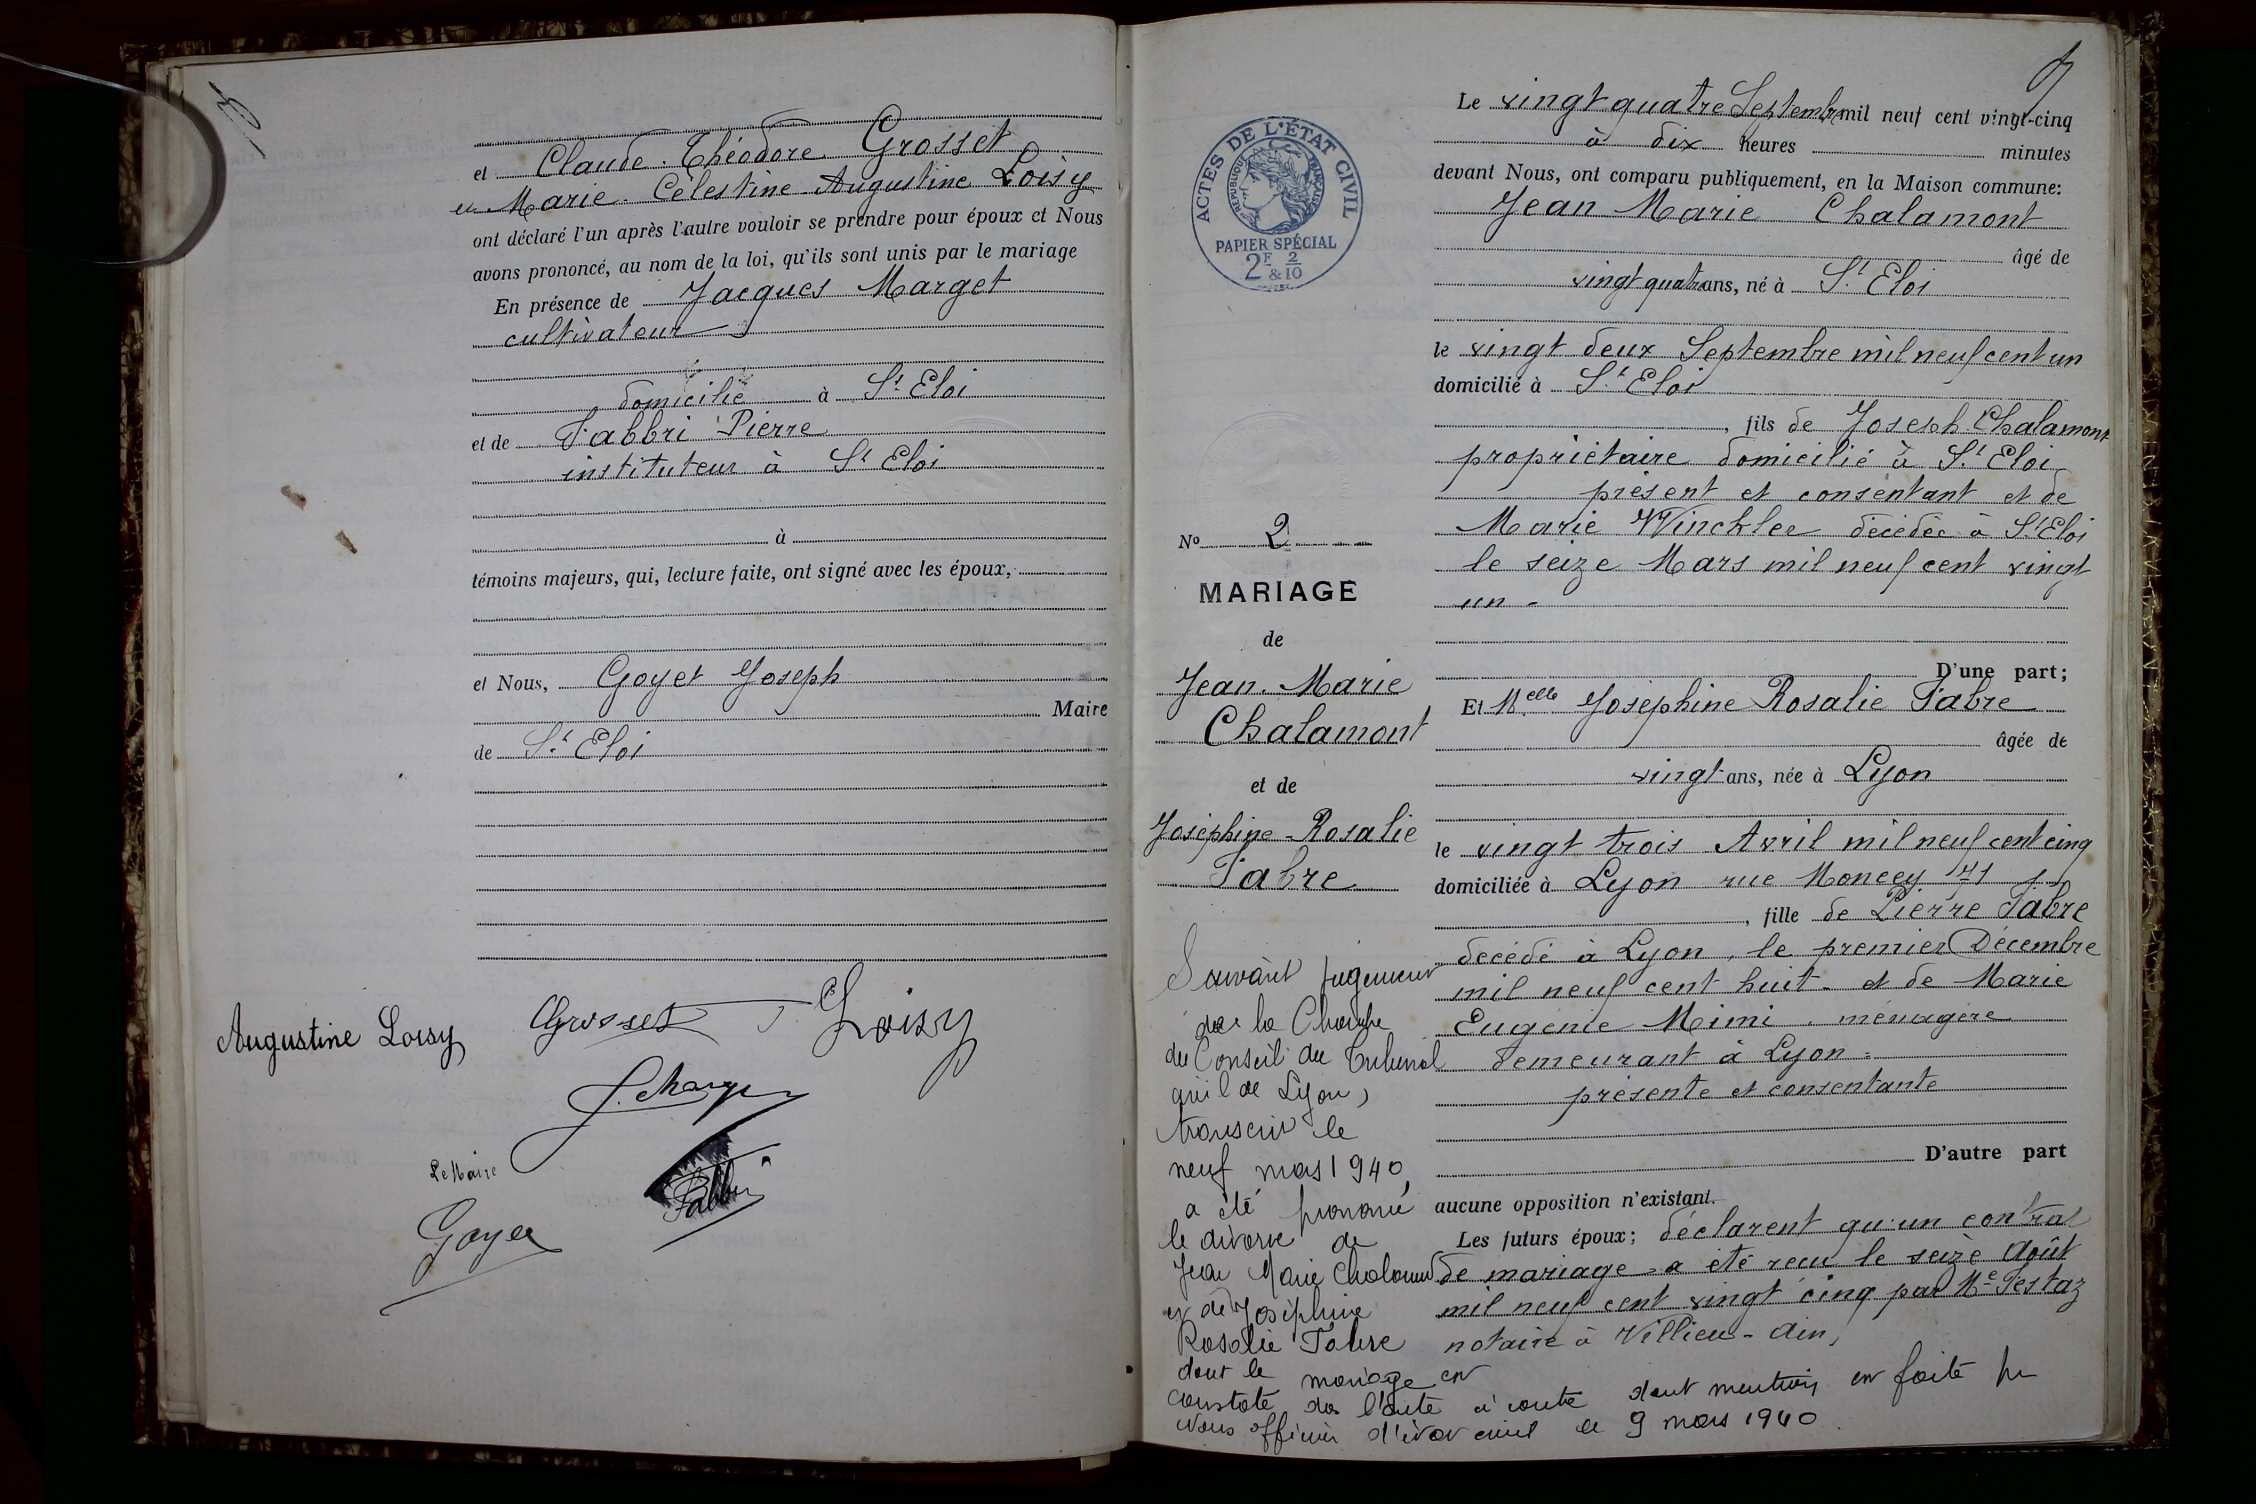 et Claude Théodore Grosset
et Marie Célestine Augustine Loisy
ont déclaré l'un après l'autre vouloir se prendre pour époux et Nous
avons prononcé, au nom de la loi, qu'ils sont unis par le mariage
En présence de Jacques Marget
cultivateur
domicilié à St Eloi
et de Fabbri Pierre
instituteur à St Eloi
à
témoins majeurs, qui, lecture faite, ont signé avec les époux,
et Nous, Goyet Joseph
Maire
de St Eloi
Augustine Loisy Grosset Loisy
Le Maire
Fabbri
Goyet
ACTES DE L'ÉTAT CIVIL
RÉPUBLIQUE FRANÇAISE
PAPIER SPÉCIAL
2F & 2/10
No 2
MARIAGE
de
Jean Marie
Chalamont
et de
Joséphine Rosalie
Fabre
Suivant jugement
de la Chambre
du Conseil du Tribunal
civil de Lyon,
transcrit le
neuf mars 1940,
a été prononcé
le divorce de
Jean Marie Chalamont
et de Joséphine
Rosalie Fabre
dont le mariage est
constaté dans l'acte ci contre dont mention est faite par
Nous officier d'état civil le 9 mars 1940.
Le vingt quatre Septembre mil neuf cent vingt-cinq
à dix heures minutes
devant Nous, ont comparu publiquement, en la Maison commune:
Jean Marie Chalamont
âgé de
vingt quatre ans, né à St Eloi
le vingt deux Septembre mil neuf cent un
domicilié à St Eloi
, fils de Joseph Chalamont
propriétaire domicilié à St Eloi
présent et consentant et de
Marie Winckler décédée à St Eloi
le seize Mars mil neuf cent vingt
un -
D'une part;
Et Melle Joséphine Rosalie Fabre
âgée de
vingt ans, née à Lyon
le vingt trois Avril mil neuf cent cinq
domiciliée à Lyon rue Moncey 171
, fille de Pierre Fabre
décédé à Lyon, le premier Décembre
mil neuf cent huit - et de Marie
Eugénie Mimi, ménagère
demeurant à Lyon -
présente et consentante
D'autre part
aucune opposition n'existant.
Les futurs époux; déclarent qu'un contrat
de mariage a été reçu le seize Août
mil neuf cent vingt cinq par Me Pestaz
notaire à Villieu - Ain,